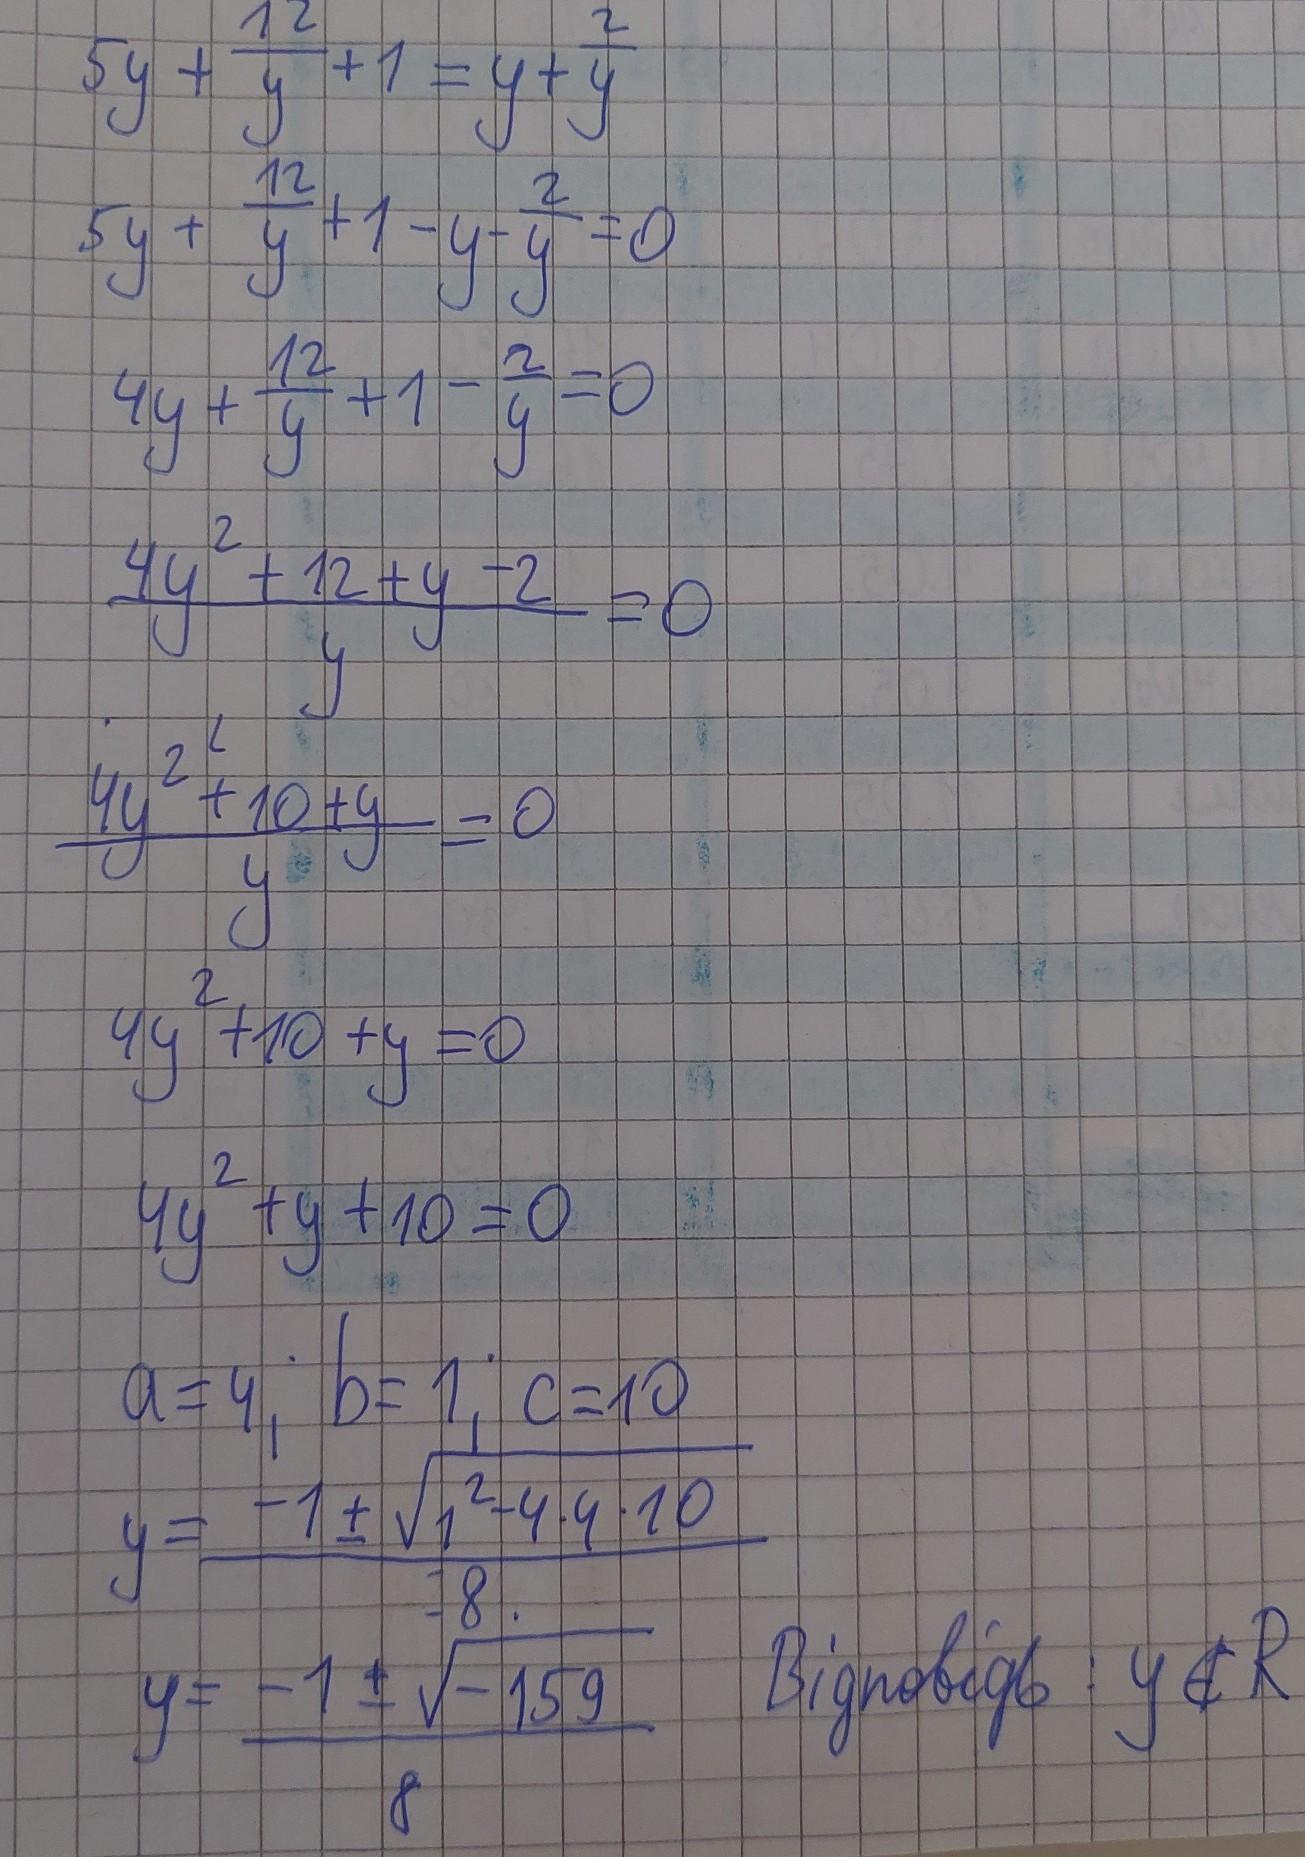 5y + 12/y + 1 = y + 2/y
5y + 12/y + 1 - y - 2/y = 0
4y + 12/y + 1 - 2/y = 0
(4y² + 12 + y - 2)/y = 0
(4y² + 10 + y)/y = 0
4y² + 10 + y = 0
4y² + y + 10 = 0
a = 4; b = 1; c = 10
y = (-1 ± √(1² - 4·4·10))/8
y = (-1 ± √(-159))/8
Відповідь: y ∉ R